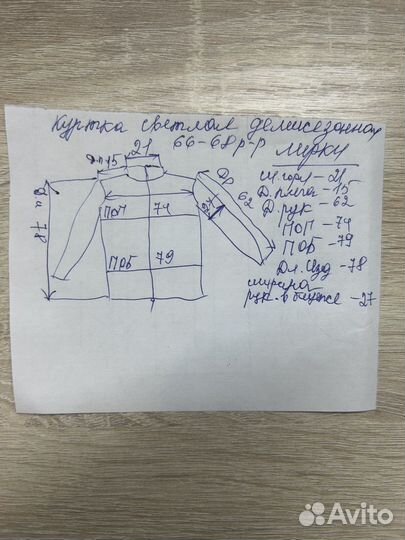 Куртка светлая демисезонная
66-68 р-р
21
Мерки
Дп 15
Др
62
Ди 78
ПОП 74
ПОБ 79
Ш. горл - 21
Д. плеча - 15
Д. рук - 62
ПОП - 74
ПОБ - 79
Дл. Изд - 78
ширина
рук. в бицепсе - 27
Avito